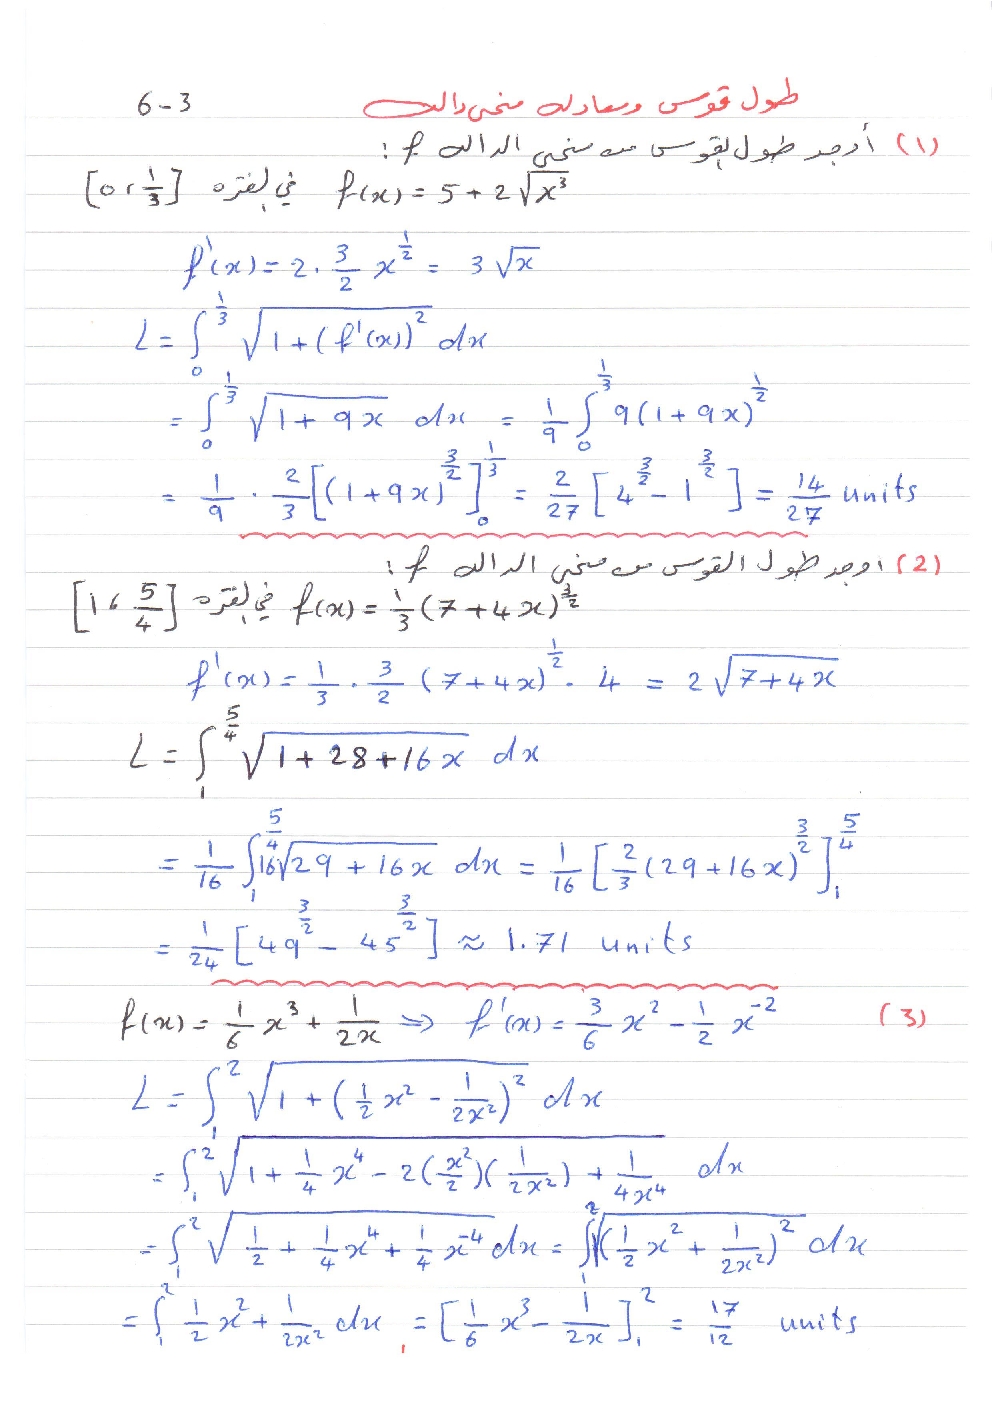 طول قوس ومعادلة منحنى دالة 6-3
(1) أوجد طول القوس من منحنى الدالة f :
f(x) = 5 + 2√x³ في الفترة [0, 1/3]
f'(x) = 2 · 3/2 x^(1/2) = 3√x
L = ∫₀^(1/3) √(1 + (f'(x))²) dx
= ∫₀^(1/3) √(1 + 9x) dx = 1/9 ∫₀^(1/3) 9(1 + 9x)^(1/2)
= 1/9 · 2/3 [(1 + 9x)^(3/2)]₀^(1/3) = 2/27 [4^(3/2) - 1^(3/2)] = 14/27 units
(2) اوجد طول القوس من منحنى الدالة f :
f(x) = 1/3 (7 + 4x)^(3/2) في الفترة [1, 5/4]
f'(x) = 1/3 · 3/2 (7 + 4x)^(1/2) · 4 = 2√(7 + 4x)
L = ∫₁^(5/4) √(1 + 28 + 16x) dx
= 1/16 ∫₁^(5/4) 16√(29 + 16x) dx = 1/16 [2/3 (29 + 16x)^(3/2)]₁^(5/4)
= 1/24 [49^(3/2) - 45^(3/2)] ≈ 1.71 units
(3) f(x) = 1/6 x³ + 1/(2x) ⇒ f'(x) = 3/6 x² - 1/2 x^(-2)
L = ∫₁² √(1 + (1/2 x² - 1/(2x²))²) dx
= ∫₁² √(1 + 1/4 x⁴ - 2(x²/2)(1/(2x²)) + 1/(4x⁴)) dx
= ∫₁² √(1/2 + 1/4 x⁴ + 1/4 x^(-4)) dx = ∫₁² √((1/2 x² + 1/(2x²))²) dx
= ∫₁² 1/2 x² + 1/(2x²) dx = [1/6 x³ - 1/(2x)]₁² = 17/12 units